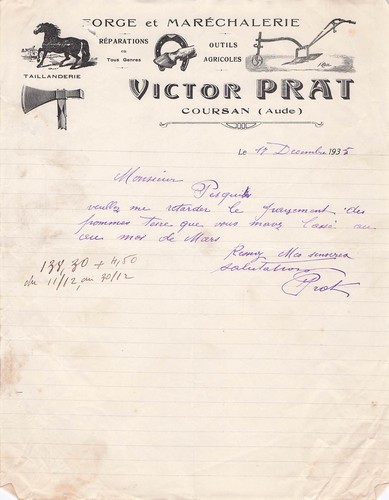 FORGE et MARÉCHALERIE
RÉPARATIONS EN Tous Genres
OUTILS AGRICOLES
TAILLANDERIE
VICTOR PRAT
COURSAN (Aude)
Le 10 Decembre 1935
Monsieur
Pesquit
veuillez me retarder le payement des
pommes terre que vous mavez au
au mois de Mars
Recevez Mes sinceres
salutations
Prat
138,30 + 4,50
du 11/12 au 30/12